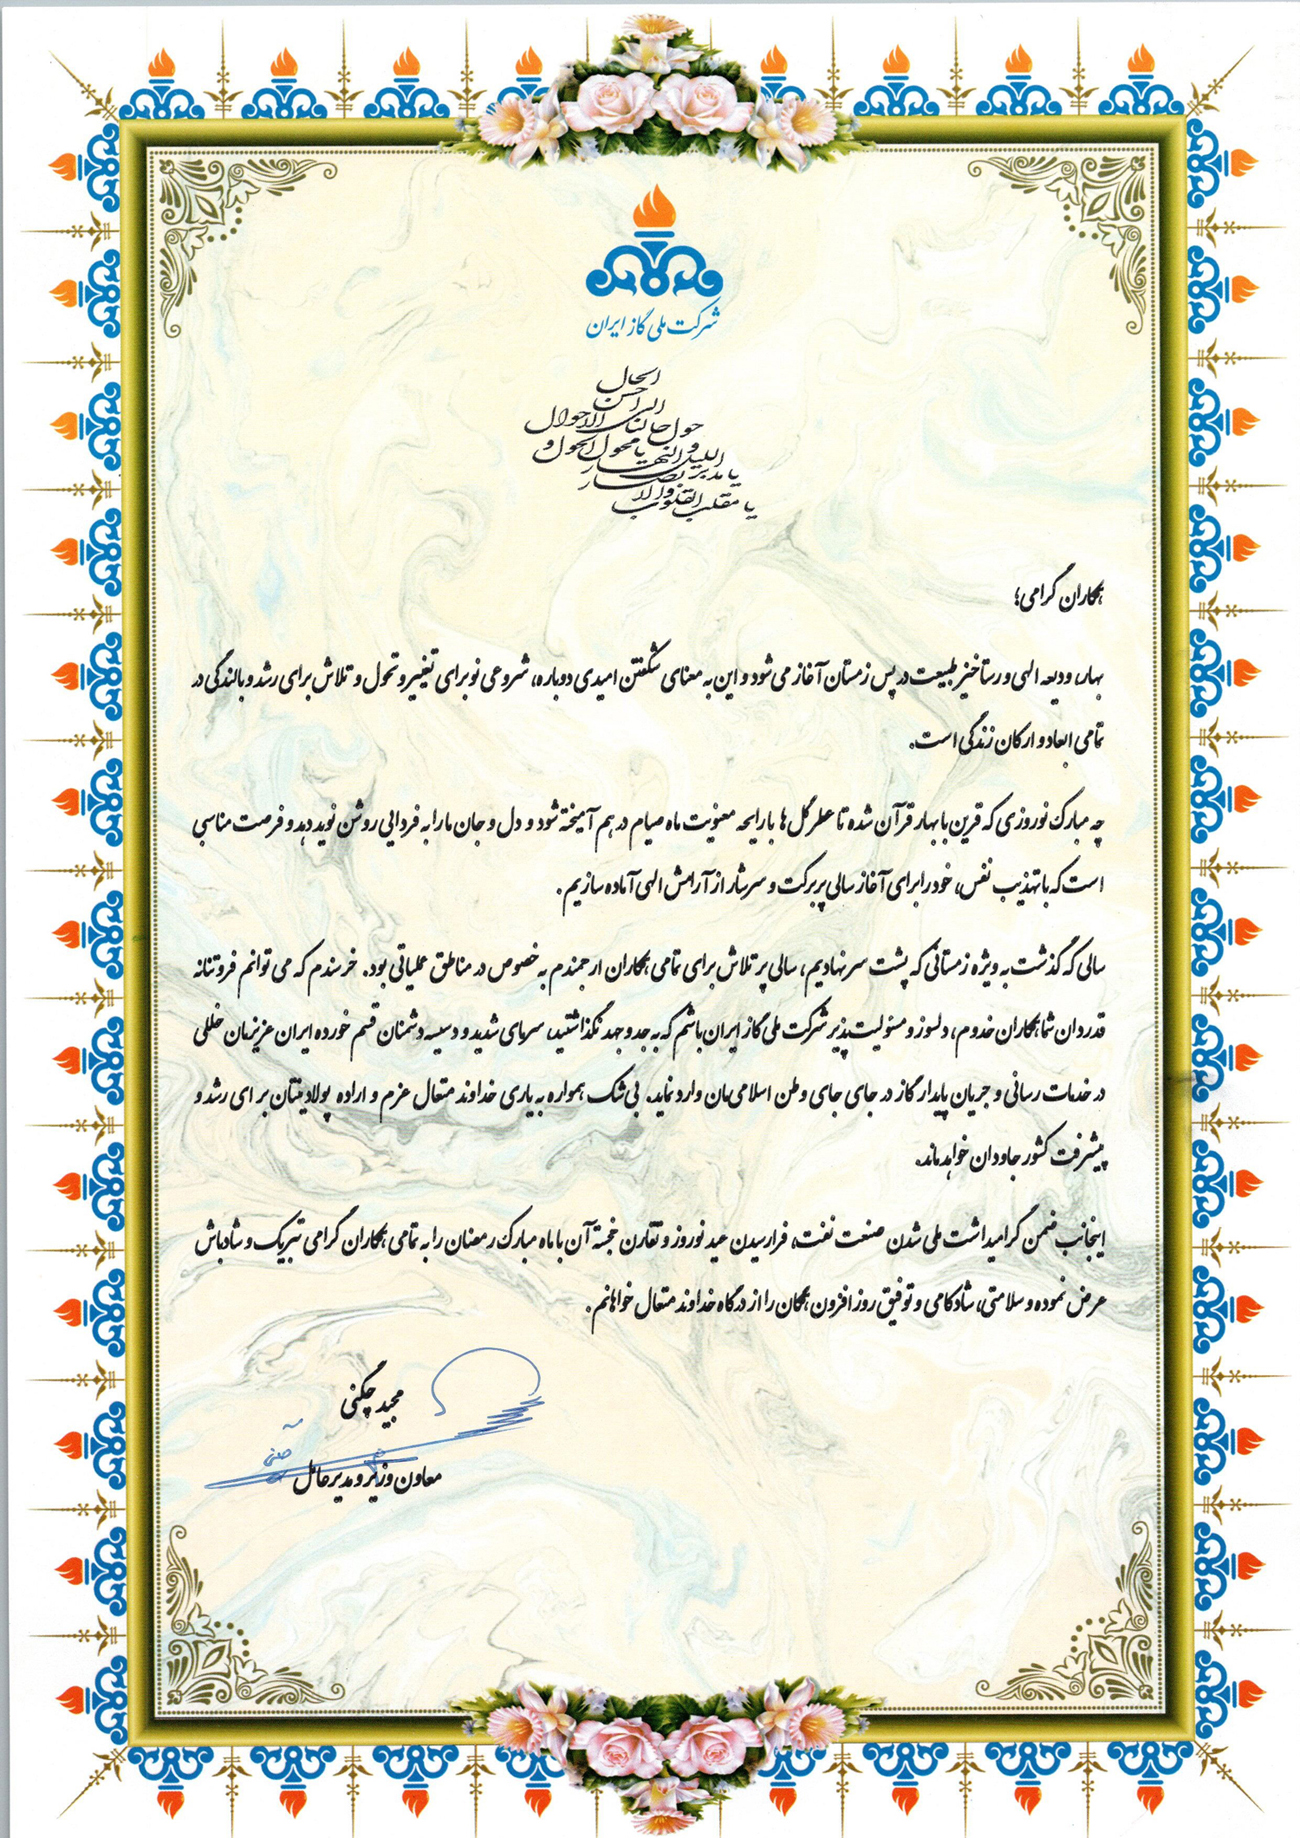 شرکت ملی گاز ایران
یا مقلب القلوب والابصار
یا مدبر اللیل و النهار
یا محول الحول و الاحوال
حول حالنا الی احسن الحال
همکاران گرامی؛
بهار، ودیعه الهی و رستاخیز طبیعت در پس زمستان آغاز می شود و این به معنای شکفتن امیدی دوباره، شروعی نو برای تغییر و تحول و تلاش برای رشد و بالندگی در
تمامی ابعاد و ارکان زندگی است.
چه مبارک نوروزی که قرین با بهار قرآن شده تا عطر گل ها با رایحه معنویت ماه صیام در هم آمیخته شود و دل و جان ما را به فردایی روشن نوید دهد و فرصت مناسبی
است که با تهذیب نفس، خود را برای آغاز سالی پر برکت و سرشار از آرامش الهی آماده سازیم.
سالی که گذشت به ویژه زمستانی که پشت سر نهادیم، سالی پر تلاش برای تمامی همکاران ارجمندم به خصوص در مناطق عملیاتی بود. خرسندم که می توانم فروتنانه
قدردان شما همکاران خدوم، دلسوز و مسئولیت پذیر شرکت ملی گاز ایران باشم که به جد و جهد نگذاشتید، سرمای شدید و دسیسه دشمنان قسم خورده ایران عزیزمان خللی
در خدمات رسانی و جریان پایدار گاز در جای جای وطن اسلامی‌مان وارد نماید. بی شک همواره به یاری خداوند متعال عزم و اراده پولادینتان برای رشد و
پیشرفت کشور جاودان خواهد ماند.
اینجانب ضمن گرامیداشت ملی شدن صنعت نفت، فرارسیدن عید نوروز و تقارن خجسته آن با ماه مبارک رمضان را به تمامی همکاران گرامی تبریک و شادباش
عرض نموده و سلامتی، شادکامی و توفیق روز افزون همگان را از درگاه خداوند متعال خواهانم.
مجید چگنی
معاون وزیر و مدیرعامل